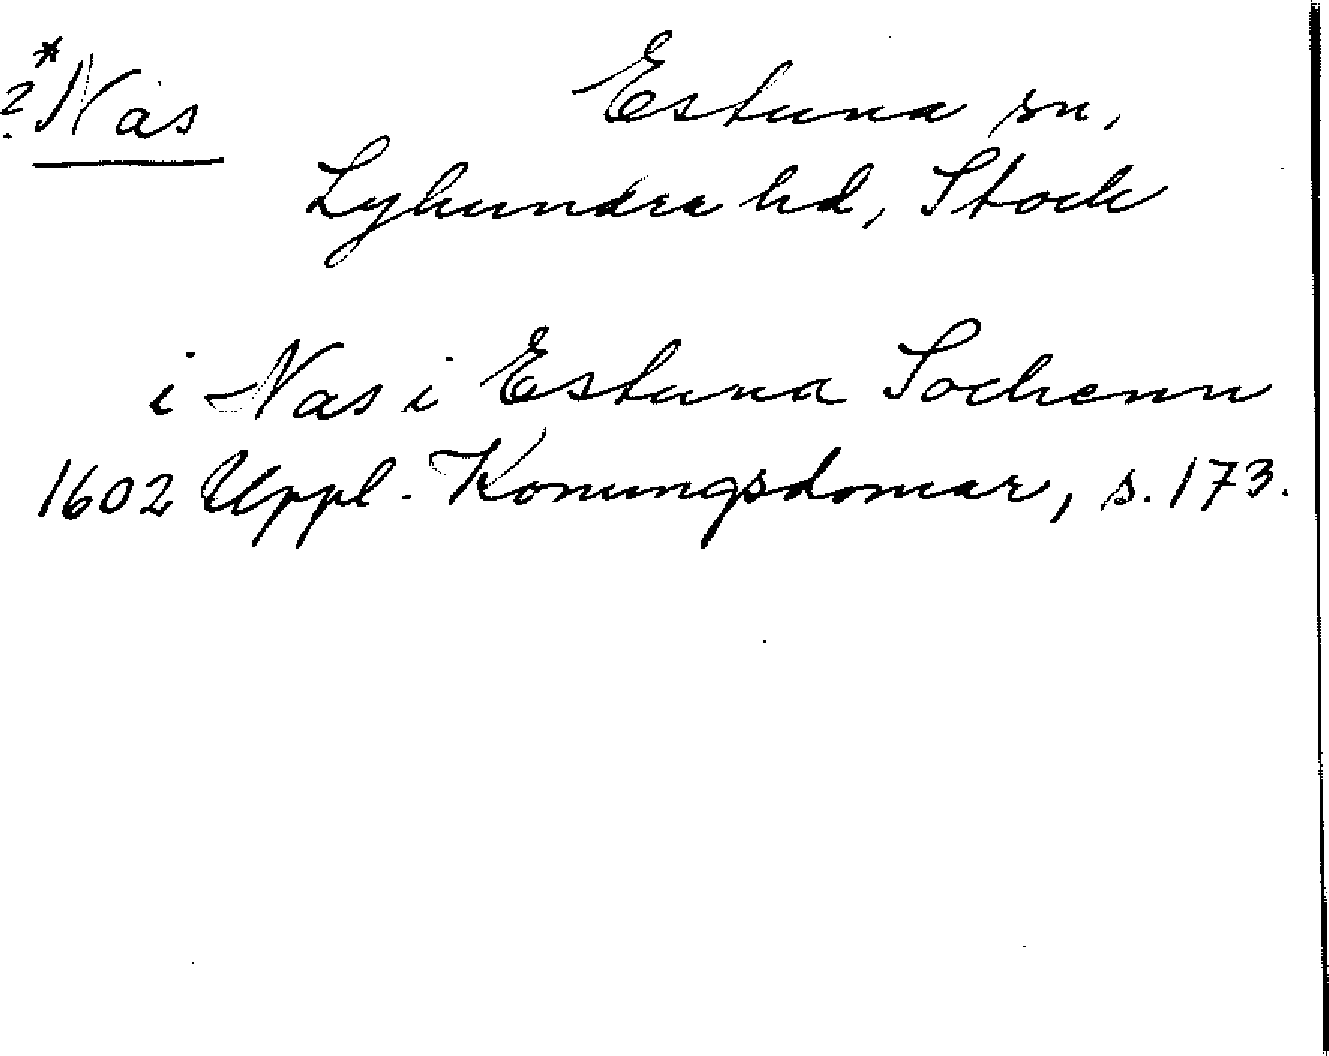 ?*Nas Estuna sn,
Lyhundra hd, Stock
i Nas i Estuna Sochenn
1602 Uppl. Konungsdomar, s. 173.